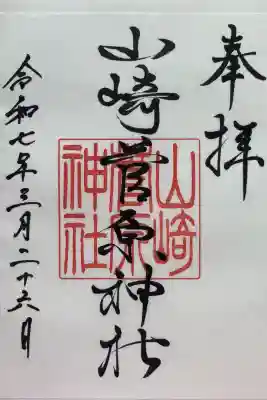 奉拝
山崎菅原神社
山崎菅原神社
令和七年三月二十六日